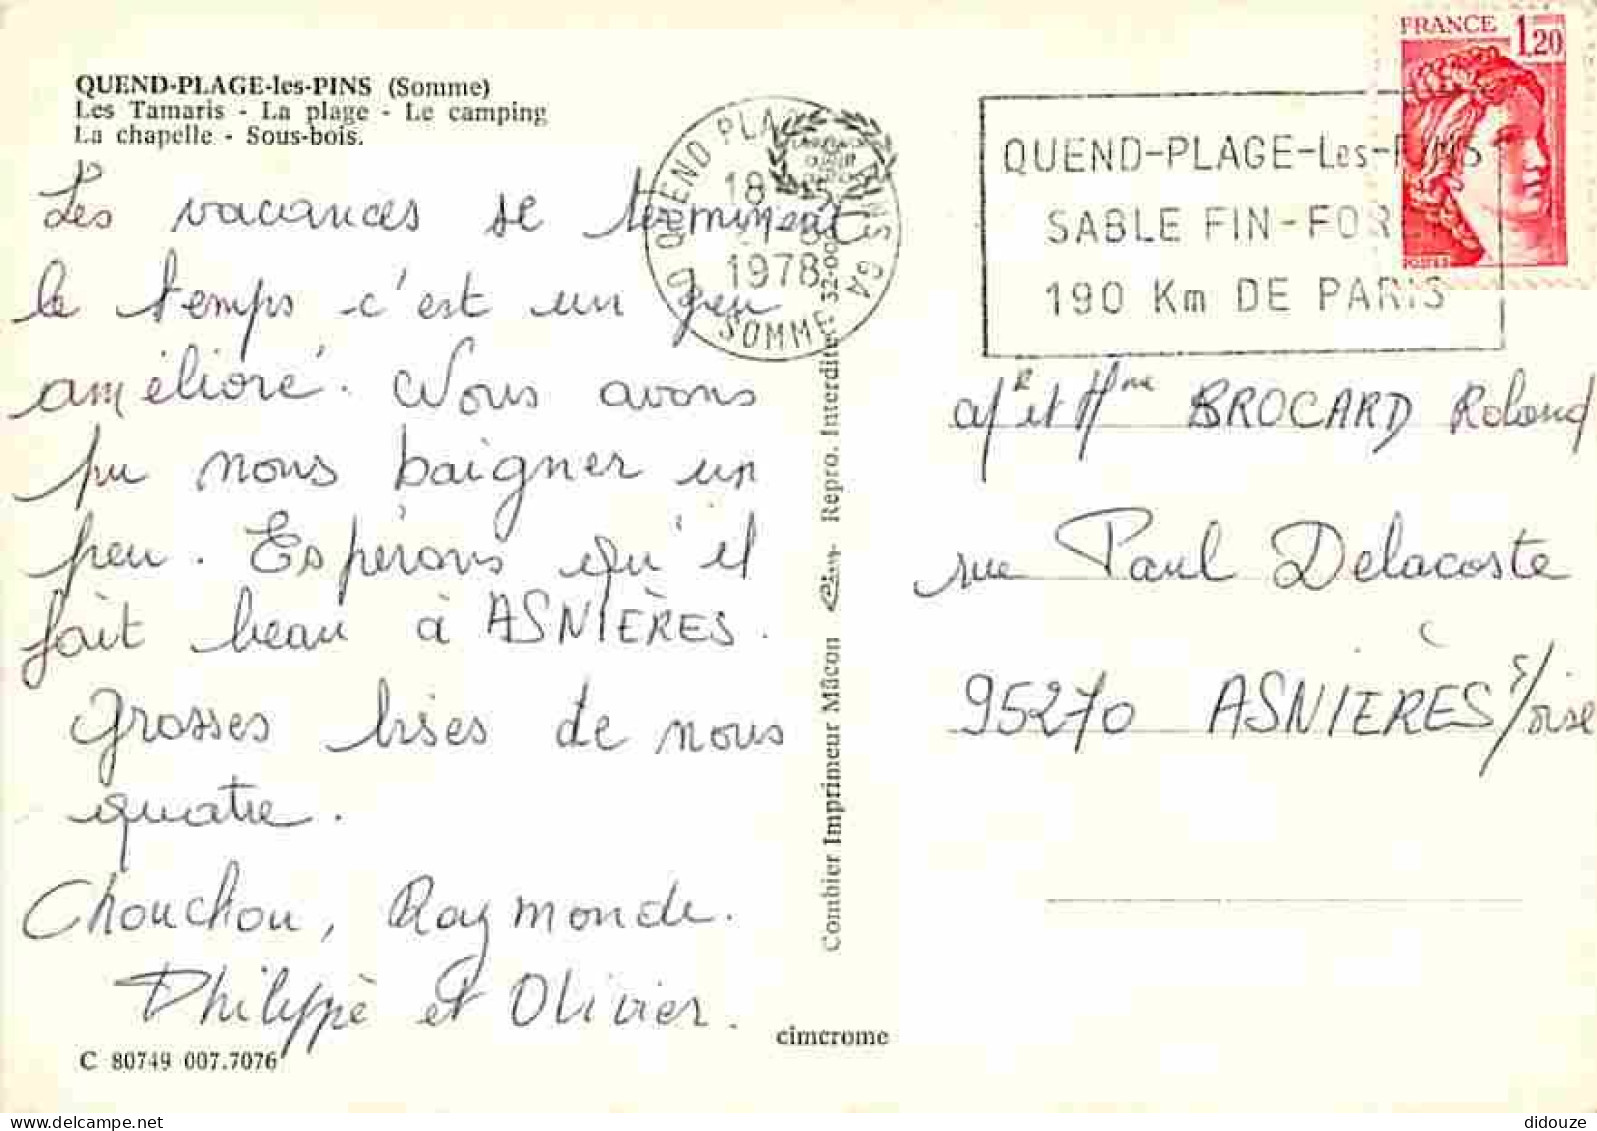 QUEND-PLAGE-les-PINS (Somme)
Les Tamaris - La plage - Le camping
La chapelle - Sous-bois.
Les vacances se terminent
le temps c'est un peu
amélioré. Nous avons
pu nous baigner un
peu. Espérons qu'il
fait beau à ASNIÈRES.
Grosses bises de nous
quatre.
Chouchou, Raymonde.
Philippe et Olivier.
C 80749 007.7076
cimcrome
Combier Imprimeur Mâcon
Repro. Interdite
QUEND PLAGE PINS GA
18
1978
80 SOMME
QUEND-PLAGE-Les-PINS
SABLE FIN-FORET
190 Km DE PARIS
FRANCE 1,20
POSTES
Mr et Mme BROCARD Roland
rue Paul Delacoste
95270 ASNIÈRES s/oise
didouze